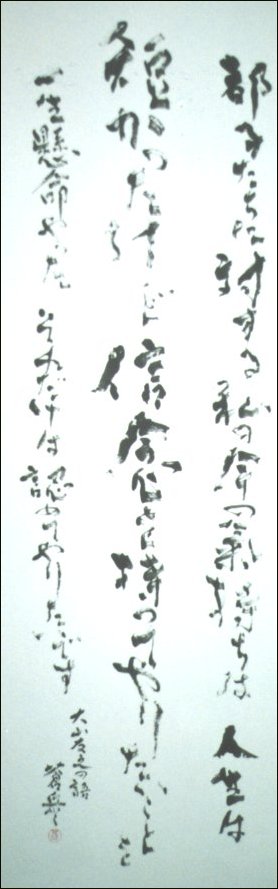 都子たちに対する私の今の氣持ちは 人生は
短かったけど 信念だけは持ってやりたいことを
一生懸命やった それだけは認めてやりたいです
大山友之の語